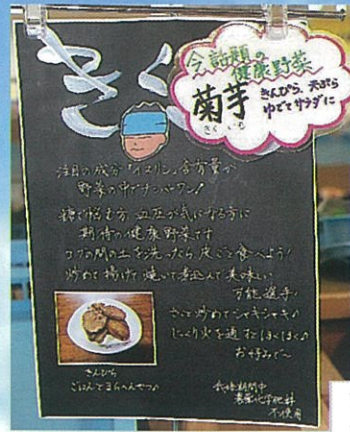 きく
今話題の
健康野菜
菊芋
きくいも
きんぴら、天ぷら
ゆでてサラダに
注目の成分「イヌリン」含有量が
野菜の中でナンバーワン!
糖で悩む方 血圧が気になる方に
期待の健康野菜です
コブの間の土を洗ったら皮ごと食べよう!
炒めて揚げて焼いて煮込んで美味い
万能選手!
さっと炒めてシャキシャキ♪
じっくり火を通せばほくほく♪
お好みで〜
きんぴら
ごはんですよ
栽培期間中
農薬化学肥料
不使用